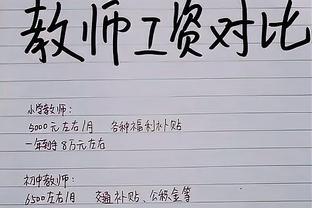 教师工资对比
小学教师：
5000元左右/月 各种福利补贴
一年到手8万元左右
初中教师：
6500左右/月 交通补贴、公积金等